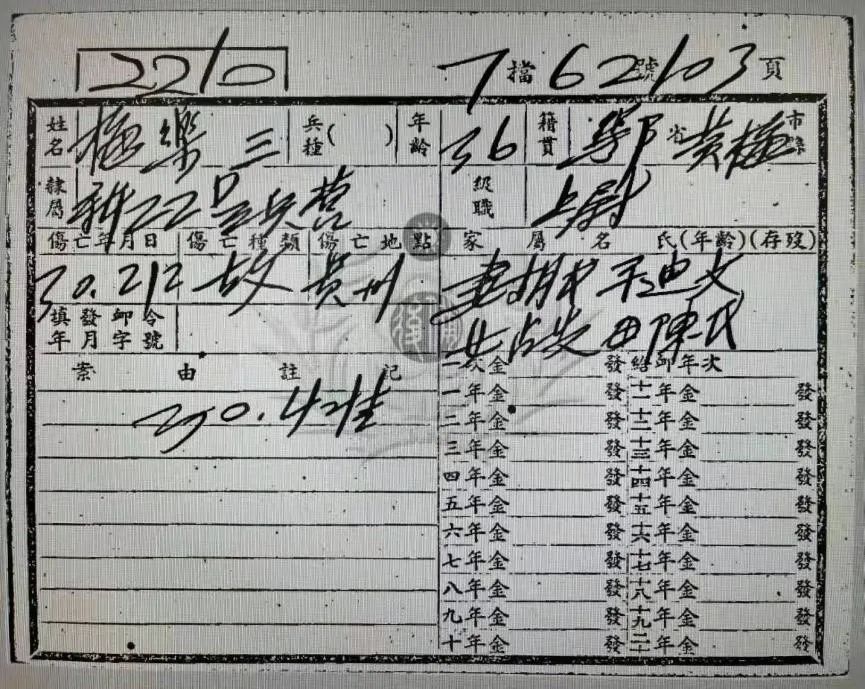 2210 7檔62號103頁
姓名 梅樂三 兵種( ) 年齡 36 籍貫 鄂省黃梅市縣
隸屬 新22D工兵營 級職 上尉
傷亡年月日 傷亡種類 傷亡地點 家屬名氏(年齡)(存歿)
30.2.12 故 貴州 妻 子迪文
女 母陳氏
填發卹令
年月字號
案由註記 一次金 發 給卹年次
30.4准 一年金 發 十一年金 發
二年金 發 十二年金 發
三年金 發 十三年金 發
四年金 發 十四年金 發
五年金 發 十五年金 發
六年金 發 十六年金 發
七年金 發 十七年金 發
八年金 發 十八年金 發
九年金 發 十九年金 發
十年金 發 二十年金 發